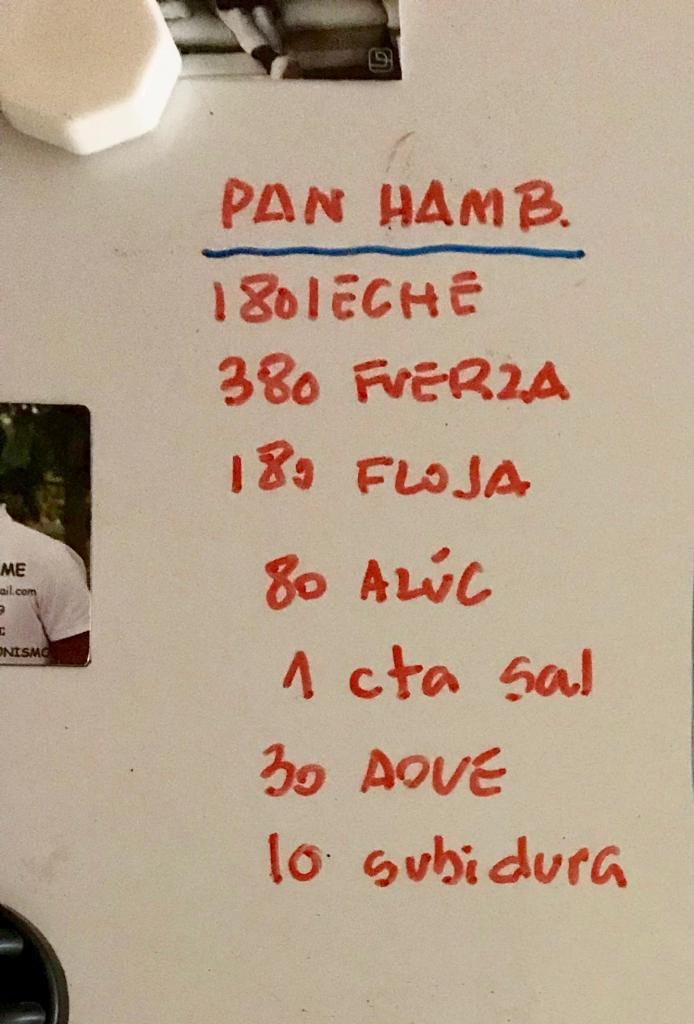 PAN HAMB.
180 LECHE
380 FUERZA
180 FLOJA
80 AZÚC
1 cta sal
30 AOVE
10 subidura
ME
ail.com
9
ONISMO